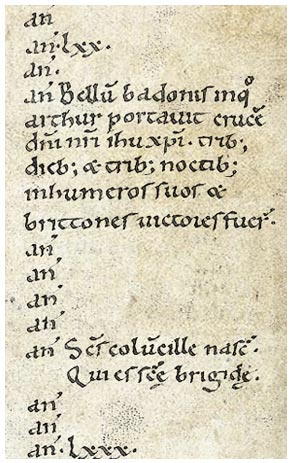 an̄
an̄·lxx·
an̄·
an̄ Bellū badonis inqͦ
arthur portauit crucē
dn̄i nr̄i ihu xp̄i · trib;
dieb; & trib; noctib;
inhumeros suos &
brittones uictores fuer̄·
an̄
an̄
an̄
an̄
an̄ Sc̄s columcille nasc̄·
Quies sc̄e brigidę·
an̄
an̄
an̄·lxxx·